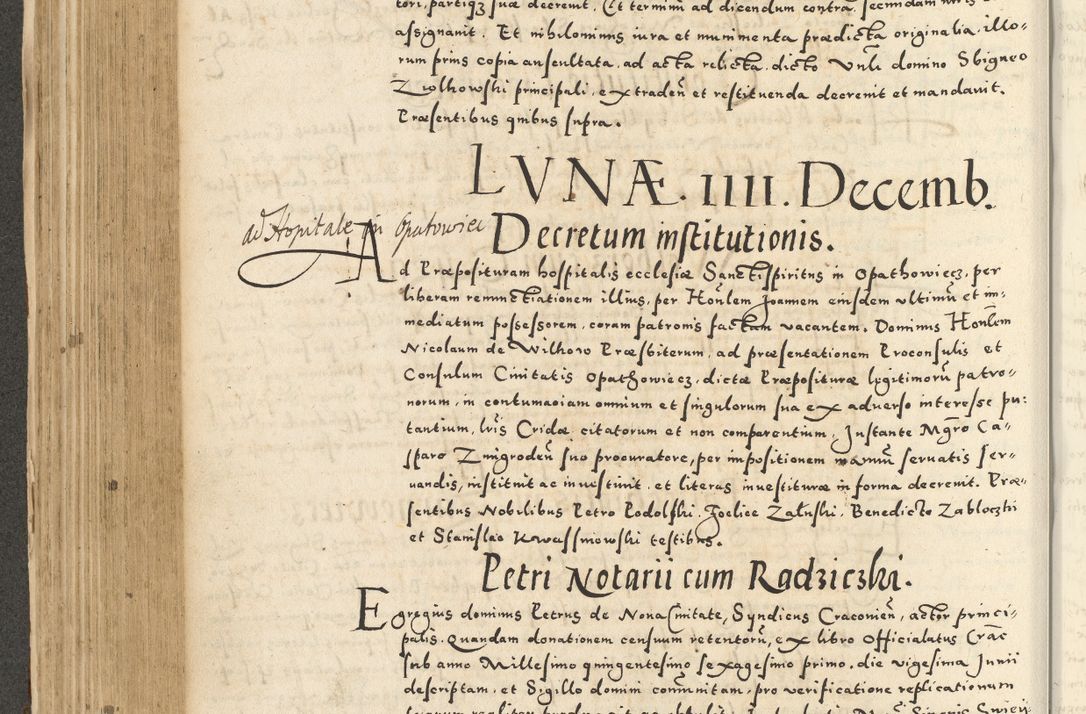 tori, partiqꝫ suæ decrevit. Et termin ad dicendum contra, secundam
assignavit. Et nihilominus iura et munimenta prædicta originalia, illo-
rum prius copia auscultata, ad acta relicta, dicto Vnli domino Sbigneo
Ziolkowski principali, extradeñ et restituenda decrevit et mandavit.
Præsentibus quibus supra.
LVNÆ. IIII. Decemb.
ad Hospitale in Opatowiec
Decretum institutionis.
Ad Præposituram hospitalis ecclesiæ Sancti spiritus in Opathowiecz, per
liberam renunctiationem illius, per Honlem Joannem eiusdem ultimũ et im-
mediatum possessorem, coram patronis factam vacantem. Dominus Honlem
Nicolaum de Wilkow Præsbiterum, ad præsentationem Proconsulis et
Consulum Civitatis Opathowiecz, dictæ Præpositurae legitimorũ patro-
norum, in contumaciam omnium et singulorum sua ex adverso interesse pu-
tantium, lrĩs Cridæ citatorum et non comparentium, Instante Mgro Ca-
sparo Zmigrodeñ suo procuratore, per impositionem manuũ servatis ser-
vandis, instituit ac investivit, et literas investituræ in forma decrevit. Præ-
sentibus Nobilibus Petro Podolski, Foelice Zaluski, Benedicto Zabloczki
et Stanislao Kwassniowski testibus.
Petri Notarii cum Radziczki.
Egregius dominus Petrus de Nova Civitate, Syndicus Cracovieñ, actor princi-
palis. Quandam donationem censuum retentorũ, ex libro Officialatus Crac
sub anno Millesimo quingentesimo sexagesimo primo, die vigesima Junii
descriptam, et Sigillo domini com̃unitam, pro verificatione replicationum